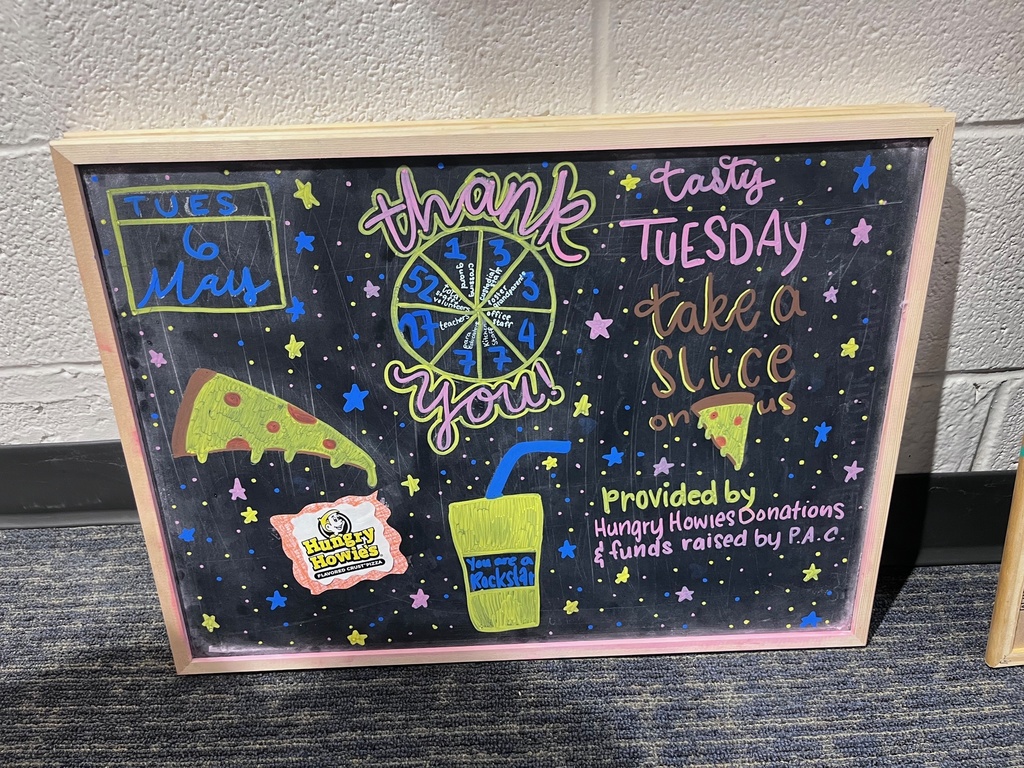 TUES
6
May
thank
1
crossing
guard
3
custodial
staff
3
foster
grandparents
4
office
staff
7
Kitchen
Staff
7
para
27
teachers
52
staff
volunteers
you!
tasty
TUESDAY
take a
slice
on us
Provided by
Hungry Howies Donations
& funds raised by P.A.C.
Hungry
Howie's
FLAVORED CRUST PIZZA
You are a
Rockstar